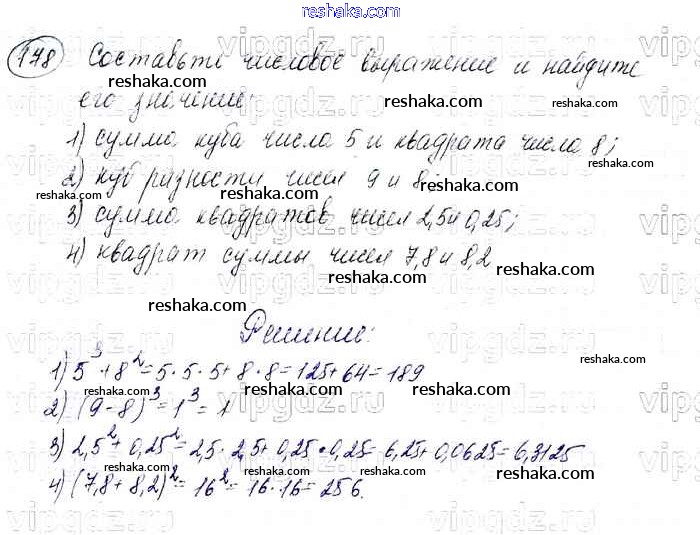 reshaka.com
178 Составьте числовое выражение и найдите
его значение:
1) сумма куба числа 5 и квадрата числа 8;
2) куб разности чисел 9 и 8;
3) сумма квадратов чисел 2,5 и 0,25;
4) квадрат суммы чисел 7,8 и 8,2
Решение:
1) 5³+8²=5·5·5+8·8=125+64=189
2) (9-8)³=1³=1
3) 2,5²+0,25²=2,5·2,5+0,25·0,25=6,25+0,0625=6,3125
4) (7,8+8,2)²=16²=16·16=256.
reshaka.com